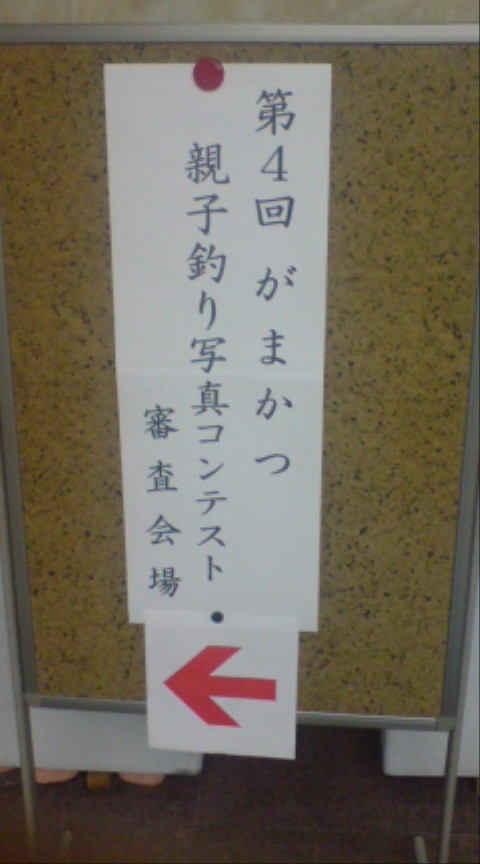 第4回 がまかつ
親子釣り写真コンテスト
審査会場